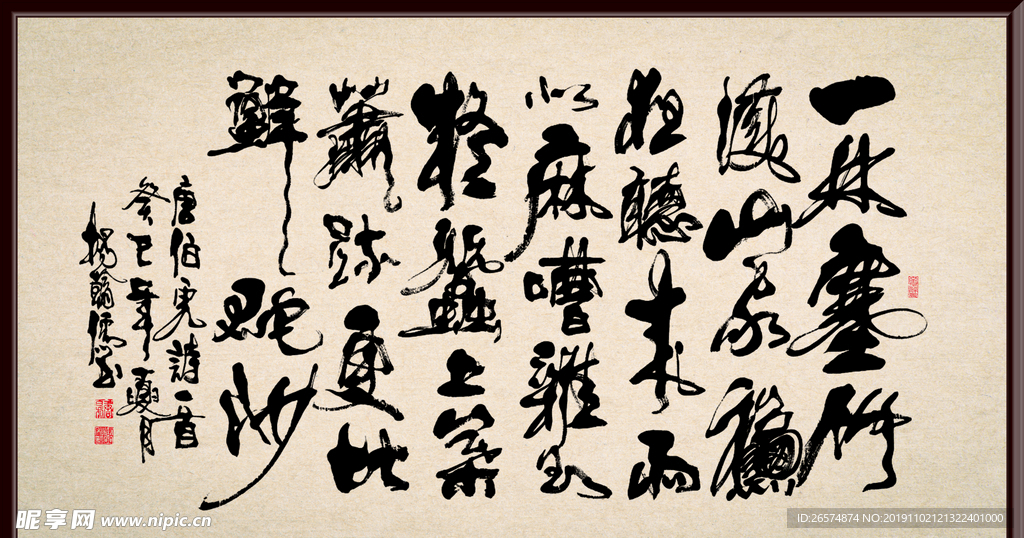 一林寒竹
護山家龝
聽來雨
似麻嘈雜
疑蠶上葉
蕭疏更比
蟹爬沙
唐伯虎詩一首
癸巳年夏月
楊翰儒書
昵享网 www.nipic.cn
ID:26574874 NO:20191102121322401000